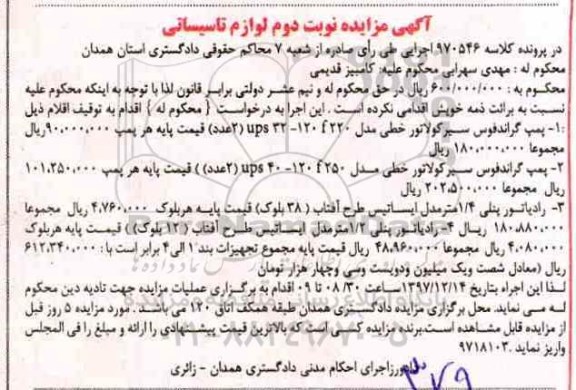 آگهی مزایده نوبت دوم لوازم تاسیساتی
در پرونده کلاسه ۹۷۰۵۴۶ اجرایی طی رأی صادره از شعبه ۷ محاکم حقوقی دادگستری استان همدان
محکوم له : مهدی سهرابی محکوم علیه: کامبیز قدیمی
محکـوم به : ۶۰۰/۰۰۰/۰۰۰ ریال در حق محکوم له و نیم عشـر دولتی برابـر قانون لذا با توجه به اینکه محکوم علیه
نسبت به برائت ذمه خویش اقدامی نکرده است . این اجرا به درخواسـت { محکوم له } اقدام به توقیف اقلام ذیل
:۱- پمپ گراندفوس سـیرکولاتور خطی مدل ups ۳۲ -۱۲۰ f ۲۲۰ (۲عدد) قیمت پایه هر پمپ ۹۰.۰۰۰.۰۰۰ریال
مجموعا ۱۸۰.۰۰۰.۰۰۰ ریال
۲- پمپ گراندفوس سـیرکولاتور خطی مـدل ups ۴۰ -۱۲۰ f ۲۵۰ (۲عدد) ) قیمت پایه هر پمپ ۱۰۱.۲۵۰.۰۰۰
ریال مجموعا ۲۰۲.۵۰۰.۰۰۰ ریال
۳- رادیاتـور پنلی ۱/۴مترمدل ایسـاتیس طرح آفتاب ( ۳۸ بلوک) قیمت پایـه هربلوک ۴.۷۶۰.۰۰۰ ریال مجموعا
۱۸۰.۸۸۰.۰۰۰ ریـال ۴- رادیاتـور پنلی ۱/۲مترمدل ایسـاتیس طـرح آفتاب ( ۱۲ بلوک) ) قیمـت پایه هربلوک
۴.۰۸۰.۰۰۰ ریال مجموعا ۴۸.۹۶۰.۰۰۰ ریال قیمت پایه مجموع تجهیزات بند ۱ الی ۴ برابر است با : ۶۱۲.۳۴۰.۰۰۰
ریال (معادل شصت ویک میلیون ودویست وسی وچهار هزار تومان
لـذا این اجراء بتاریخ ۱۳۹۷/۱۲/۱۴سـاعت ۰۸/۳۰ تا ۰۹ اقدام به برگزاری عملیات مزایده جهت تادیه دین محکوم
له می نماید. محل برگزاری مزایده دادگستری همدان طبقه همکف اتاق ۱۲۰ می باشـد . مورد مزایده ۵ روز قبل
از مزایده قابل مشاهده است.برنده مزایده کسی است که بالاترین قیمت پیشنهادی را ارائه و مبلغ را فی المجلس
واریز نماید .۹۷۱۸۱۰۳
دادورزاجرای احکام مدنی دادگستری همدان - زائری
۳۷۹